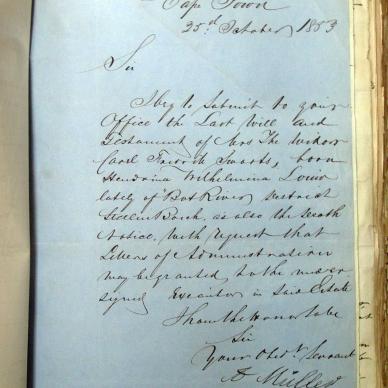 Cape Town
25.d October 1853
Sir
I beg to submit to your
Office the Last Will and
Testament of Mrs The Widow
Carel Swarts, born
Hendrina Wilhelmina Louw
lately of Bot River District
as also the Death
Notice, with request that
Letters of Administration
may be granted to the under
signed Executor in said Estate
I have the Honor to be
Sir
Your Obedt. Servant
Muller